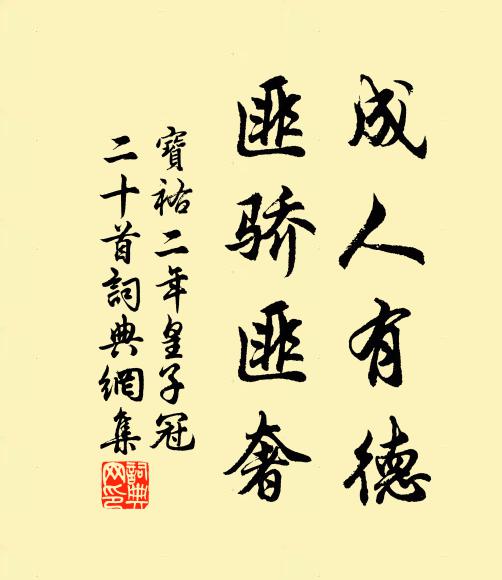 成人有德
匪骄匪奢
寶祐二年皇子冠
二十首詞典網集
詞典網印